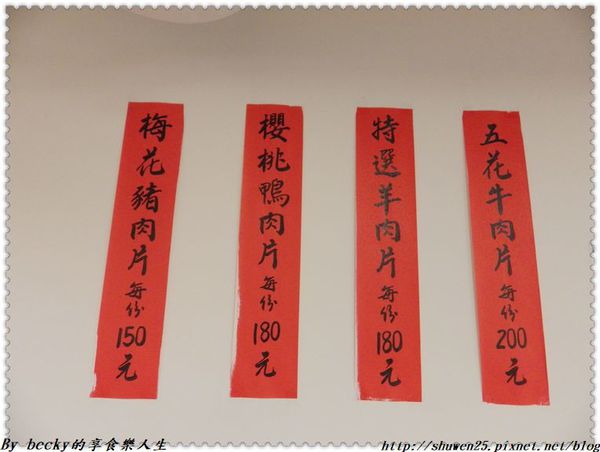 梅花豬肉片每份150元
櫻桃鴨肉片每份180元
特選羊肉片每份180元
五花牛肉片每份200元
By becky的享食樂人生
http://shuwen25.pixnet.net/blog